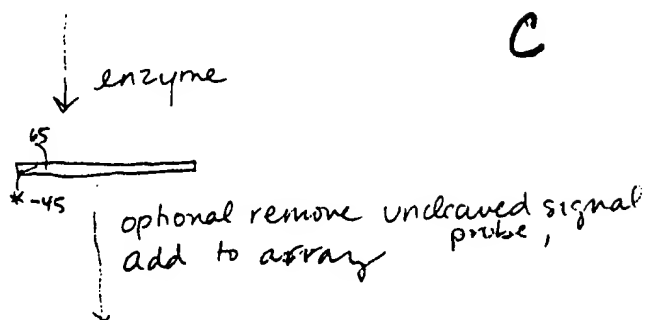 C
enzyme
65
* -45
optional remove uncleaved signal
probe,
add to array